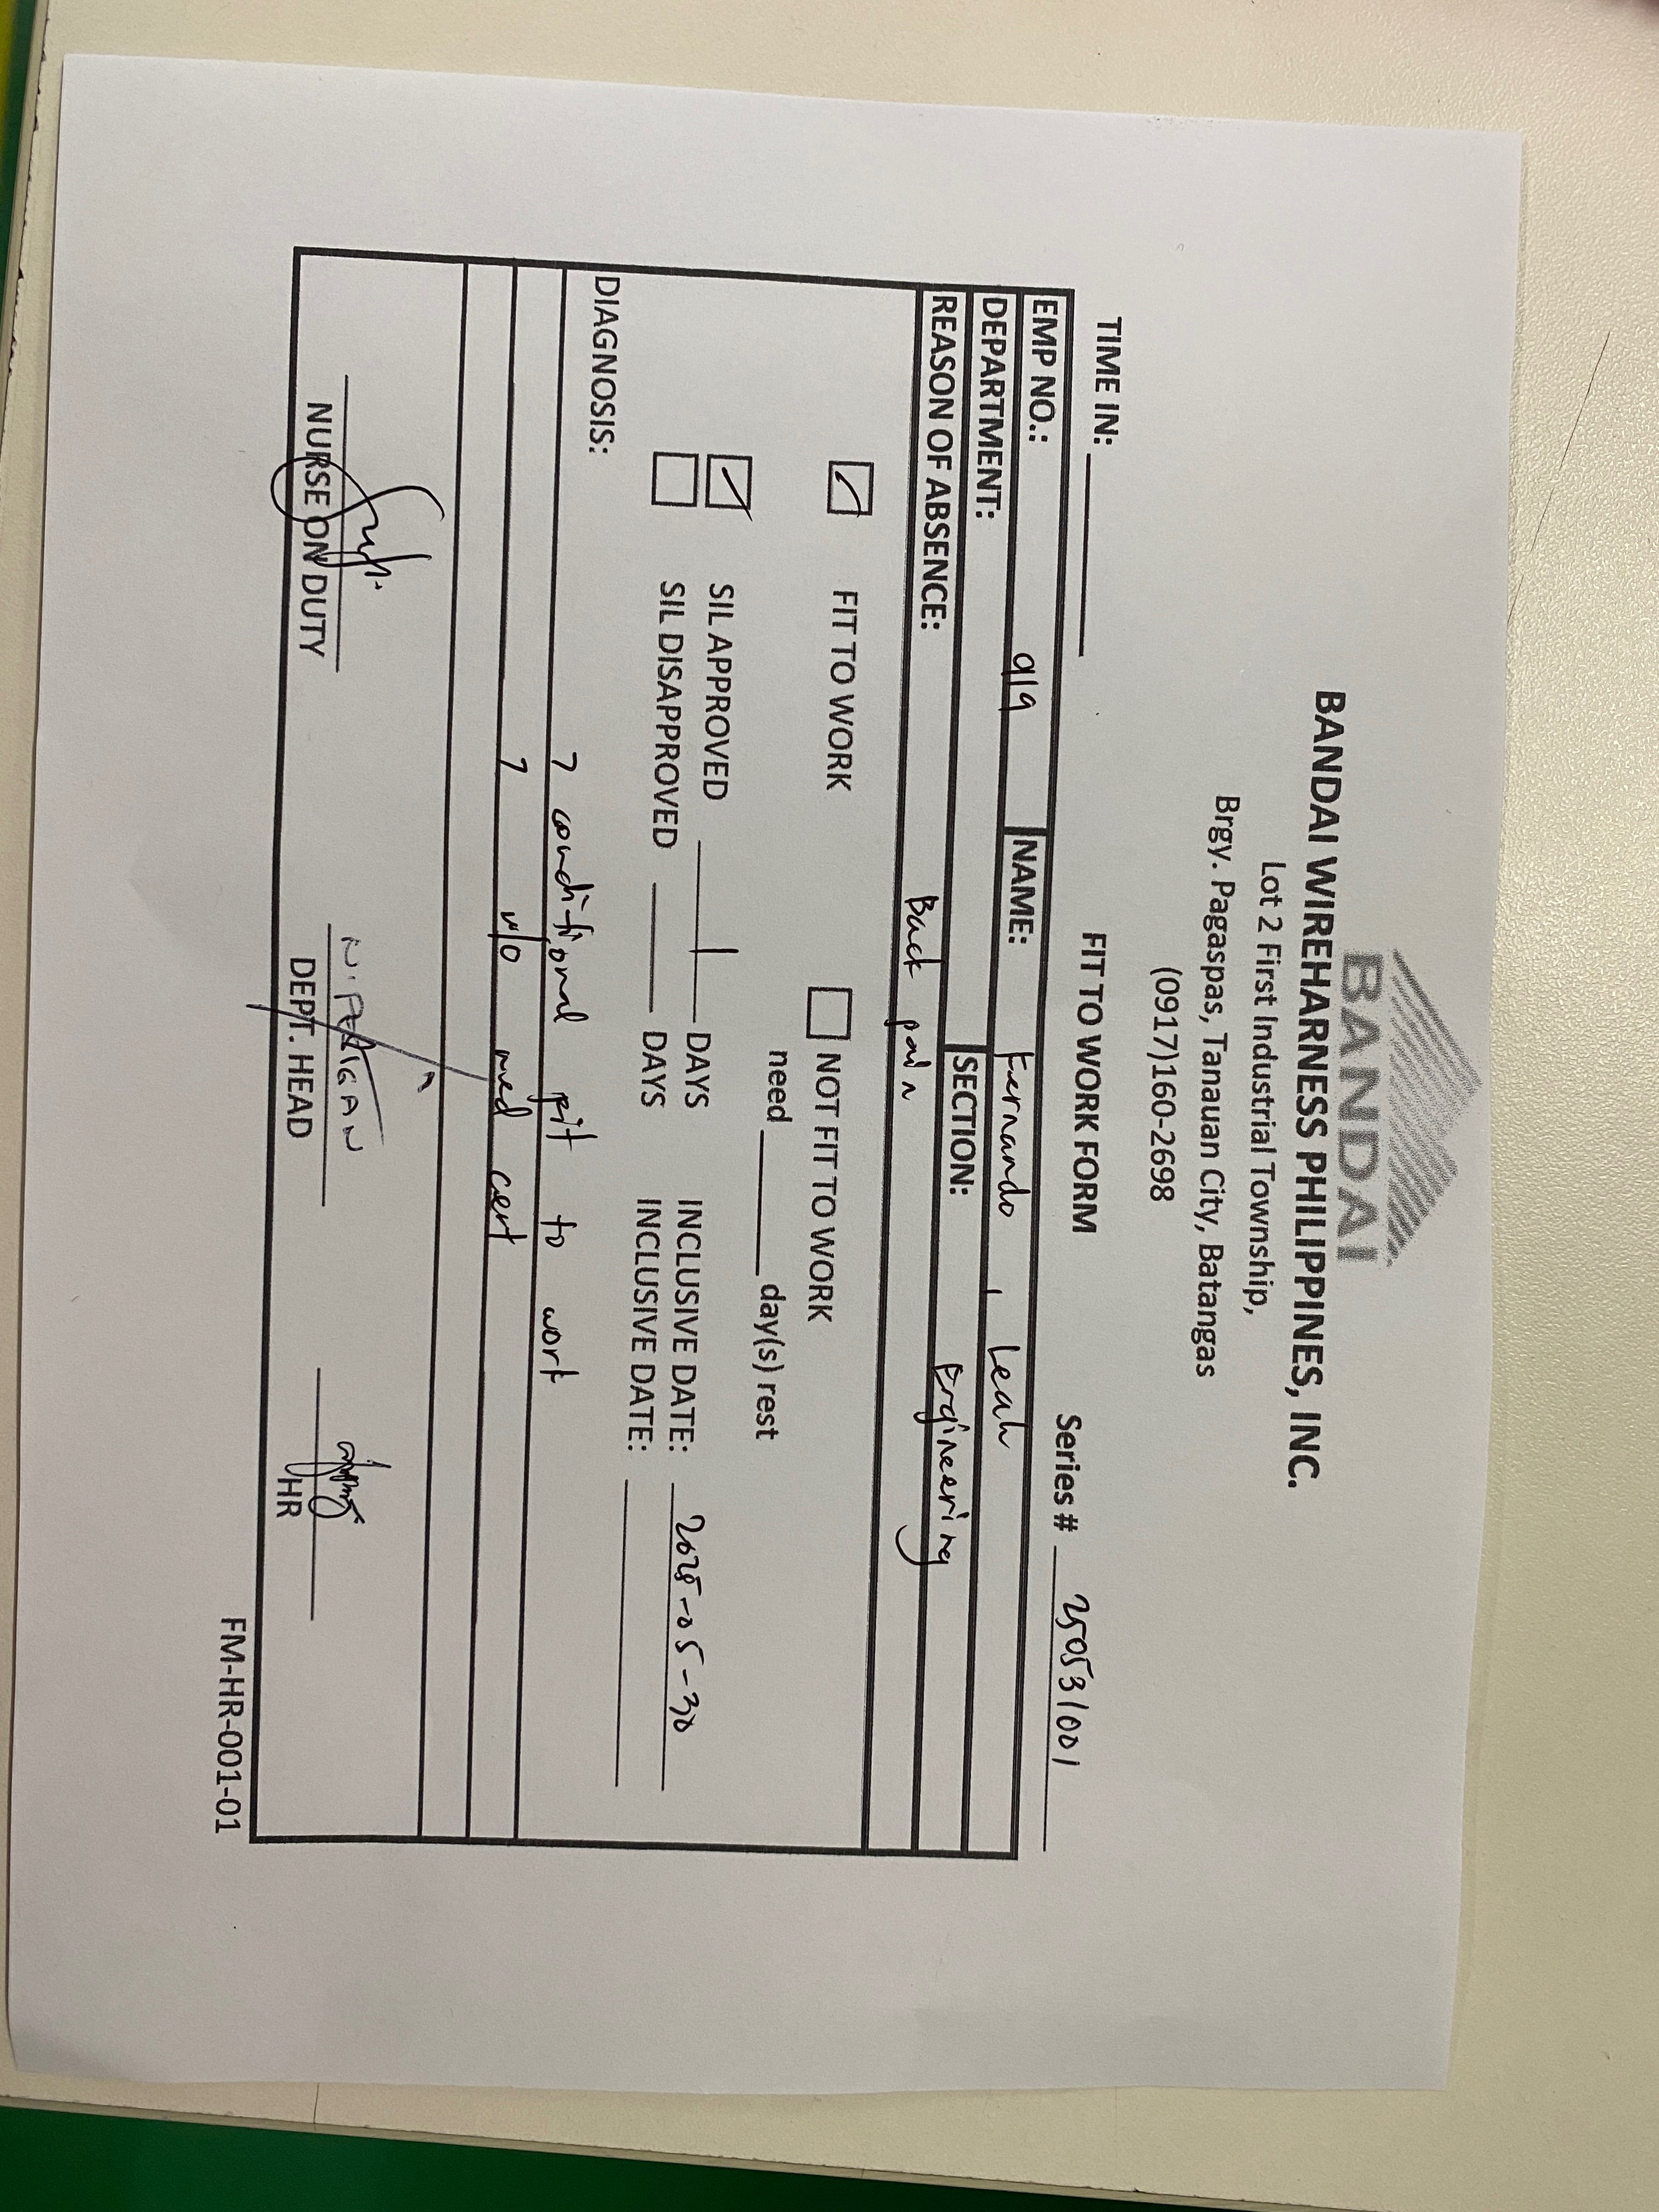 BANDAI
BANDAI WIREHARNESS PHILIPPINES, INC.
Lot 2 First Industrial Township,
Brgy. Pagaspas, Tanauan City, Batangas
(0917)160-2698
FIT TO WORK FORM
TIME IN: Series # 250531001
EMP NO.: 919 NAME: Fernando, Leah
DEPARTMENT: SECTION: Engineering
REASON OF ABSENCE: Back pain
FIT TO WORK NOT FIT TO WORK
need ______ day(s) rest
SIL APPROVED 1 DAYS INCLUSIVE DATE: 2025-05-30
SIL DISAPPROVED ______ DAYS INCLUSIVE DATE: ______
DIAGNOSIS:
7 conditional fit to work
7 w/o med cert
NURSE ON DUTY DEPT. HEAD HR
FM-HR-001-01